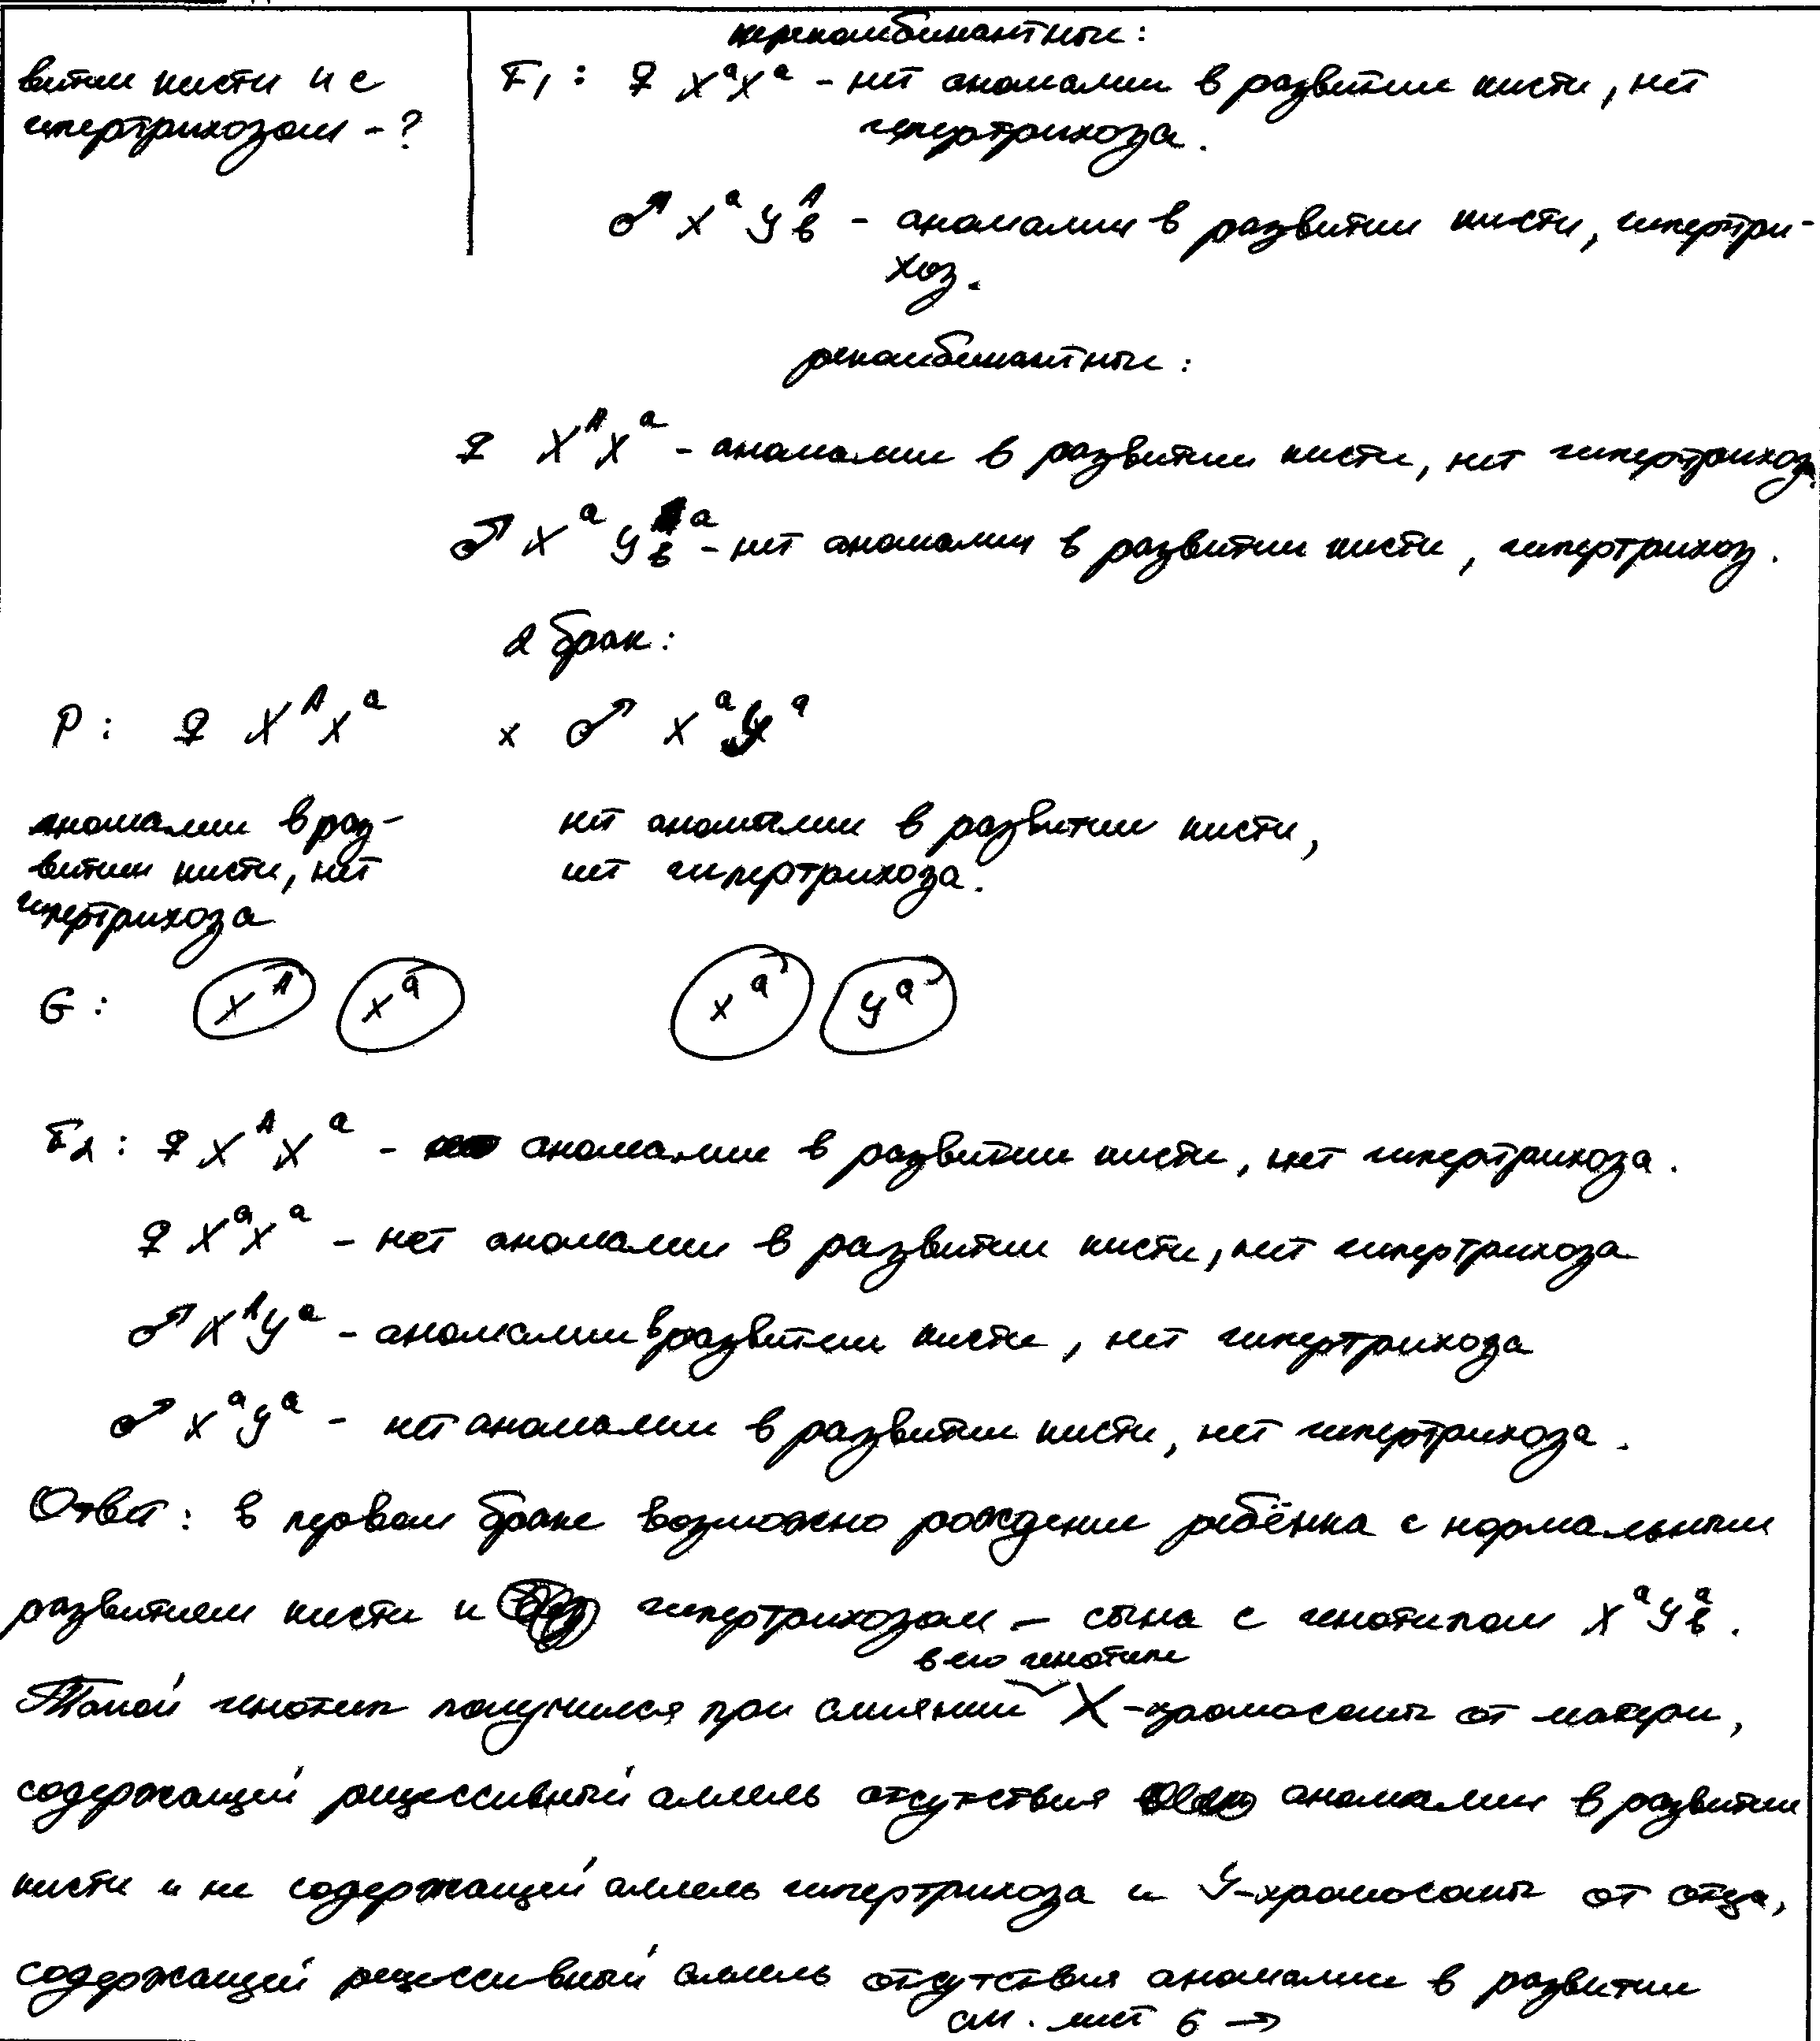 нерекомбинантные:
витии кисти и с
гипертрихозом - ?
F₁: ♀ XᵃXᵃ - нет аномалии в развитии кисти, нет
гипертрихоза.
♂ XᵃYᴬв - аномалии в развитии кисти, гипертри-
хоз.
рекомбинантные:
♀ XᴬXᵃ - аномалии в развитии кисти, нет гипертрихоза
♂ XᵃYᵃв - нет аномалии в развитии кисти, гипертрихоз.
2 брак:
P: ♀ XᴬXᵃ × ♂ XᵃYᵃ
аномалии в раз-
витии кисти, нет
гипертрихоза
нет аномалии в развитии кисти,
нет гипертрихоза.
G: Xᴬ Xᵃ Xᵃ Yᵃ
F₂: ♀ XᴬXᵃ - аномалии в развитии кисти, нет гипертрихоза.
♀ XᵃXᵃ - нет аномалии в развитии кисти, нет гипертрихоза
♂ XᴬYᵃ - аномалии в развитии кисти, нет гипертрихоза
♂ XᵃYᵃ - нет аномалии в развитии кисти, нет гипертрихоза.
Ответ: в первом браке возможно рождение ребёнка с нормальным
развитием кисти и гипертрихозом - сына с генотипом XᵃYᵃв.
в его генотипе
Такой генотип получился при слиянии X-хромосомы от матери,
содержащей рецессивный аллель отсутствия аномалии в развитии
кисти и не содержащей аллель гипертрихоза и Y-хромосомы от отца,
содержащей рецессивный аллель отсутствия аномалии в развитии
см. лист 6 →